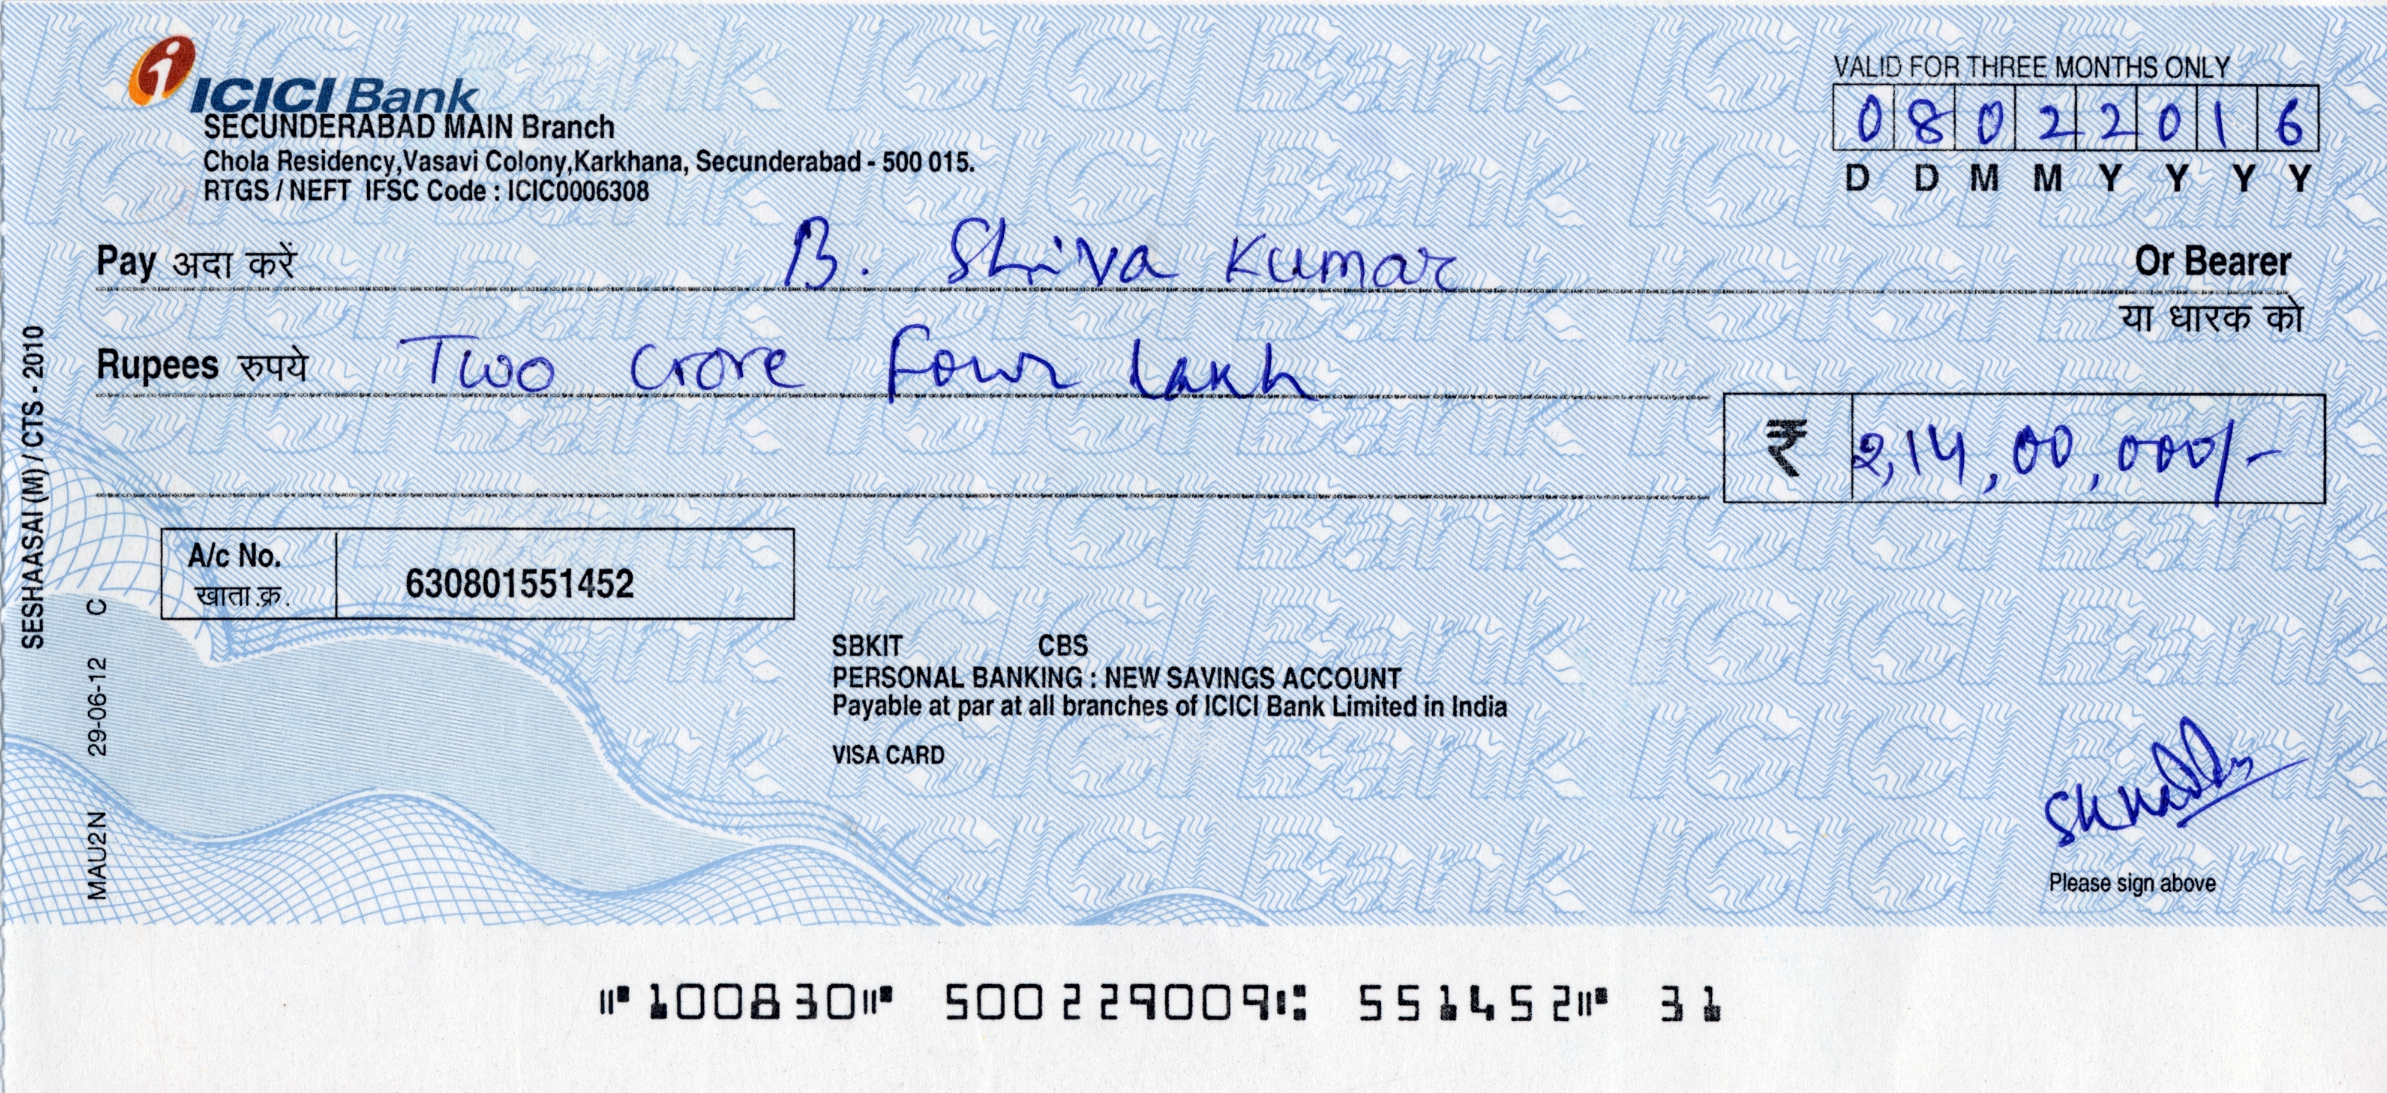 ICICI Bank
SECUNDERABAD MAIN Branch
Chola Residency,Vasavi Colony,Karkhana, Secunderabad - 500 015.
RTGS / NEFT IFSC Code : ICIC0006308
VALID FOR THREE MONTHS ONLY
0 8 0 2 2 0 1 6
D D M M Y Y Y Y
Pay अदा करें B. Shiva Kumar Or Bearer
या धारक को
Rupees रुपये Two Crore Four lakh
₹ 2,14,00,000/-
A/c No. 630801551452
खाता.क्र.
SBKIT CBS
PERSONAL BANKING : NEW SAVINGS ACCOUNT
Payable at par at all branches of ICICI Bank Limited in India
VISA CARD
Please sign above
SESHAASAI (M) / CTS - 2010
MAU2N 29-06-12 C
⑈100830⑈ 500229009⑆ 551452⑈ 31